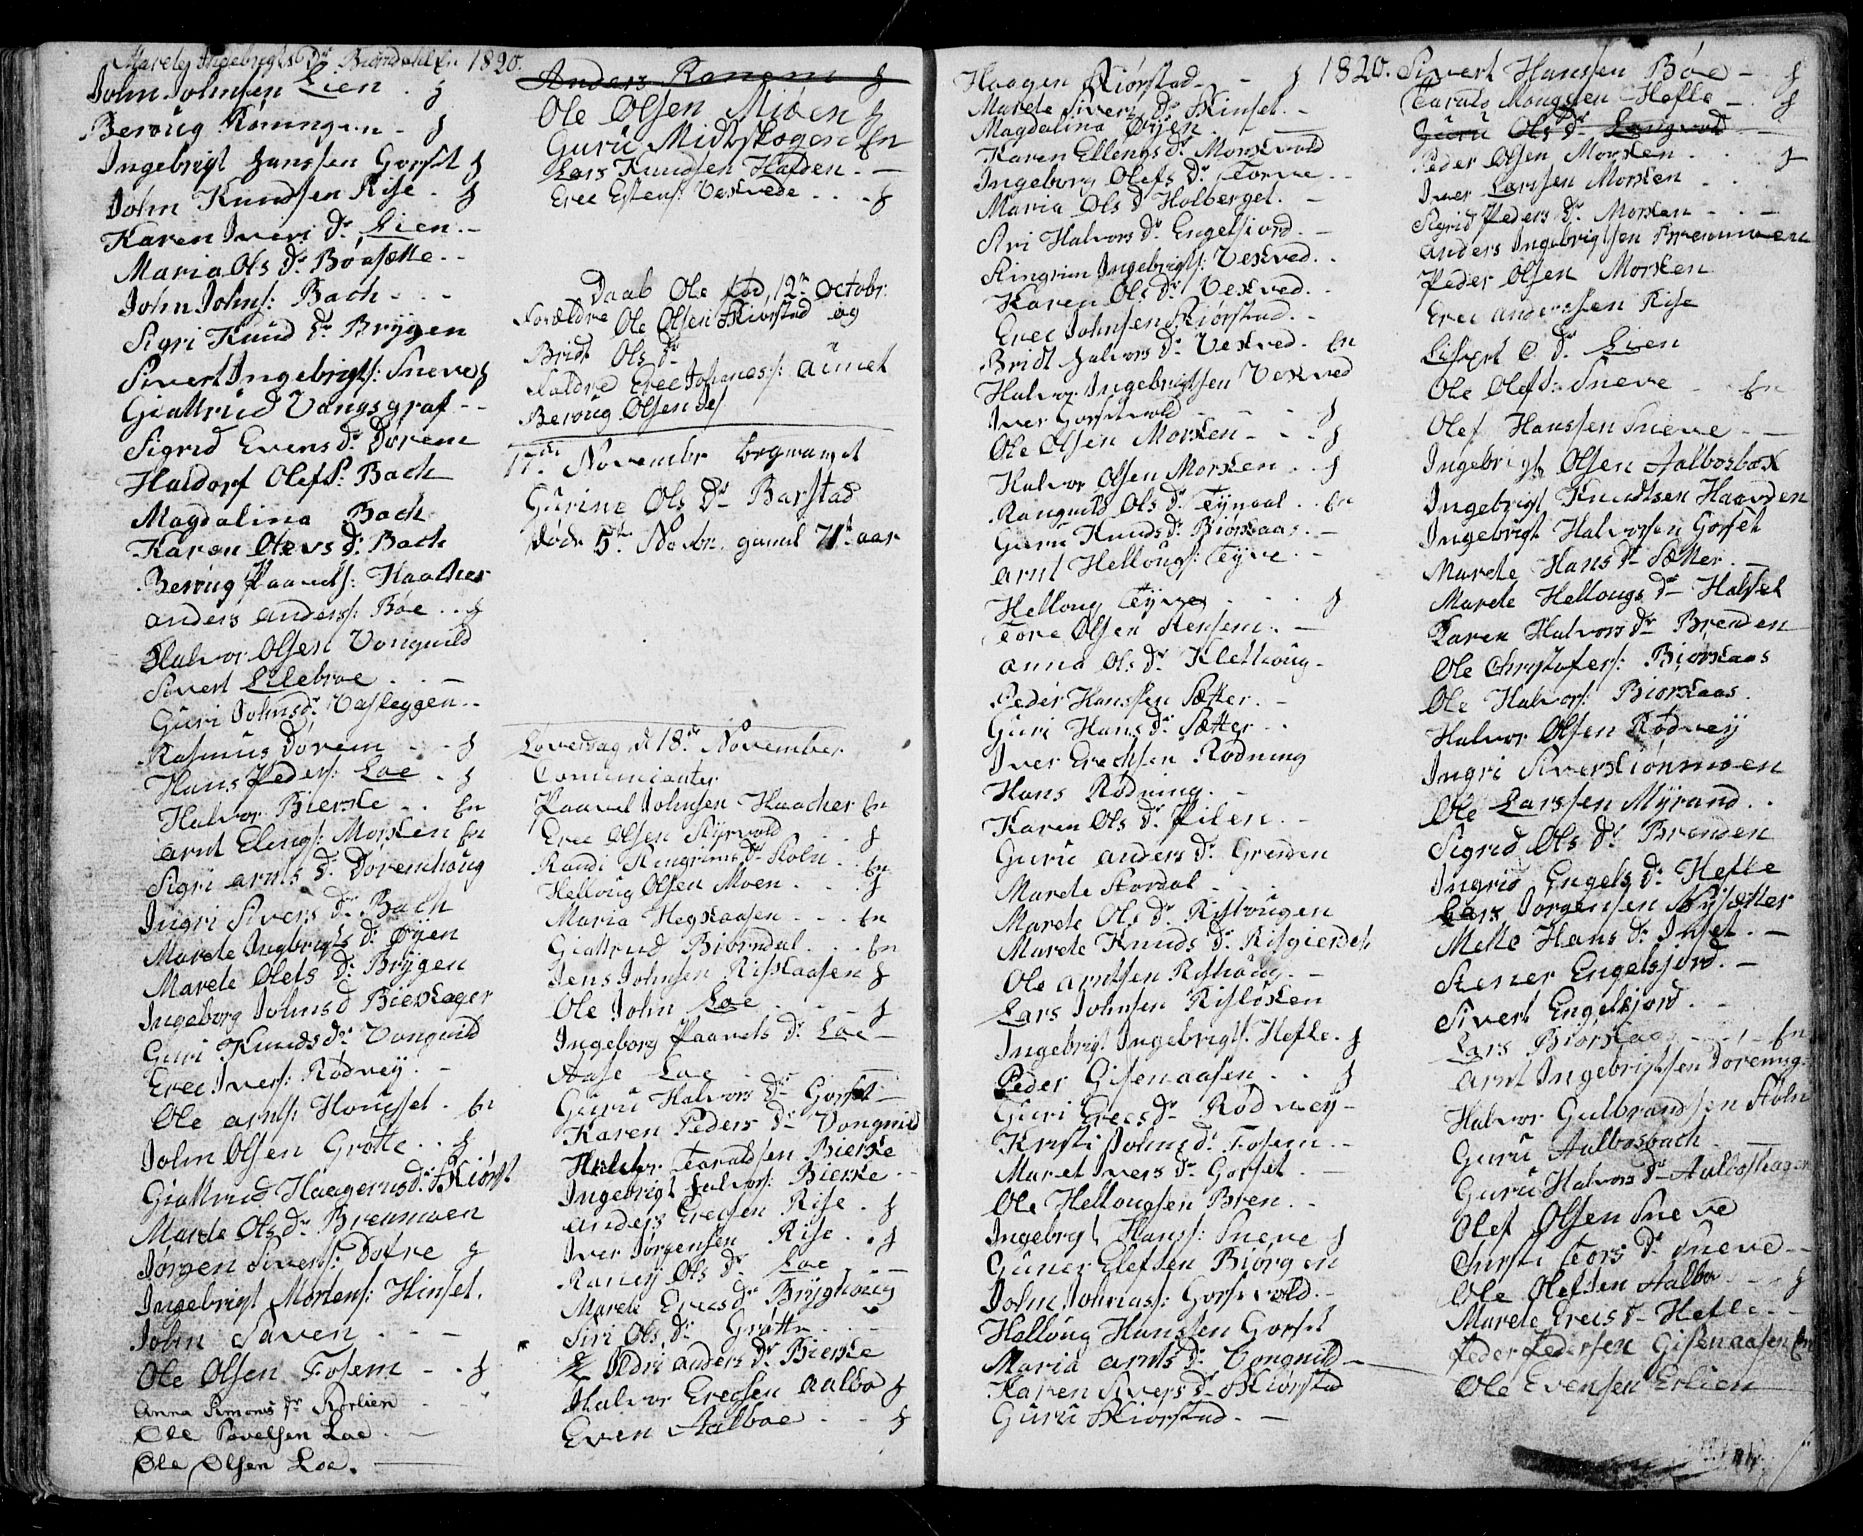 Marete Ingebrigts Dr Biørndahl En 1820.
John Johnsen Lien . J
Beroug Roningen - J
Ingebrigt Hanssen Gorset J
John Knudsen Rise . J
Karen Ivers Dr Lien. -
Maria Ols Dr Boesætte. -
John Johns: Bach - -
Sigri Knud Dr Brygen
Sivert Ingebrigts: Sneve J
Giattrud Vangsgraf - -
Sigrid Evens Dr Dorem
Haldorf Olefs: Bach
Magdalina Bach
Karen Olevs Dr Bach
Beroug Paavels: Haacher
Anders Anders: Bøe . . J
Halvor Olsen Vongnild
Sivert Lilebroe . . -
Guri Johnsdr Vasleggen. -
Rasmus Dorem - - J
Hans Peders: Loe . J
Halvor Bierke . . En
Arnt Elengs: Morken En
Sigri Arnts Dr Doremhoug
Ingri Sivers Dr Bach
Marete Ingebrigts Dr Øyen
Marete Olefs Dr Brygen
Ingeborg Johns D Bierkager
Guri Knuds Dr Vongnild
Erec Ivers: Rødvey. -
Ole Arnts: Hougset . En
John Olsen Grøtte . . J
Giattrud Haagensdr: Skiørst
Marete Ols Dr Brenmoen
Jørgen Sivers: Dofre J
Ingebrigt Mortens: Hinset.
John Saven . . -
Ole Olsen Fosem - . J
Anna Simons Dr Rørlien
Ole Povelsen Loe . -
Ole Olsen Loe. -
Anders Ronem J
Ole Olsen Mioen J
Guru Midtskogen En
Lars Knudsen Hafden. -
Erec Estens: Vekvede . . . J
Daab Ole fød 12te Octobr:
Forældre Ole Olsen Skiørstad og
Bridt Ols Dr
Faddre Erec Johaness: Aunet
Beroug Olsen
17de November begravet
Gurine Ols Dr Barstad
døde 5te Novbr. gamel 71t aar
Løverdag d 18de November
Comunicanter
Paavel Johnsen Haacher En
Erec Olsen Skyrvold . . J
Randi Ringrims Dr Stoln . . En
Helloug Olsen Moen . . . J
Maria Hegkaasen - - - En
Giattrud Biørndal . . . En
Jens Johnsen Riskaasen J
Ole John Loe - - - J
Ingeborg Paavels Dr Loe -
Aase Loe -
Guru Halvors Dr Gorset -
Karen Peders Dr Vongnild
Halvor Taraldsen Bierke
Ingebrigt Halvors: Bierke -
Anders Erecsen Rise . J
Iver Jørgensen Rise . . J
Raney Ols Dr Loe - -
Marete Erecs Dr Bryghoug
Siri Ols Dr Grøtte - -
Sedri Anders Dr Bierke
Halvor Erecsen Aalbo J
Even Aalboe - - J
Haagen Skiørstad - - J 1820.
Marete Sivers Dr Hinset. -
Magdalina Øyen . . -
Karen Ellengs Dr Morkvold
Ingeborg Olefs Dr Torve . -
Maria Ols D Holberget. -
Ari Halvors Dr Engelsiord. -
Ringrim Ingebrigts: Vekved. .
Karen Ols Dr Vekved. .
Erec Johnsen Skiørstad. -
Bridt Halvors Dr Vekved. En
Halvor Ingebrigtsen Vekved
Iver Gorsetvold - - - J
Ole Olsen Morken - . . J
Halvor Olsen Morken . . J
Rangnild Ols Dr Tynaal . . En
Guru Knuds Dr Biørkaas . -
Arnt Hellougs: Tyve . -
Helloug Tyve . . . J
Tore Olsen Stensem. -
Anna Ols Dr Klethoug -
Peder Hanssen Sætter. -
Guri Hans Dr Sætter . .
Iver Erechsen Rødning
Hans Rødning. -
Karen Ols Dr Pilen. -
Guru Anders Dr Grenden
Marete Stordal . . -
Marete Ols Dr Risbrougen
Marete Knuds Dr Risgierdet
Ole Arntsen Risthoug. -
Lars Johnsen Risløkken
Ingebrigt Ingebrigts: Hefte. J
Peder Gisenaasen . . J
Guri Erecs Dr Rødvey -
Kristi Johns Dr Fosem. -
Maret Ivers Dr Gorset
Ole Hellougsen Bren. -
Ingebrigt Hanss: Sneve J
Guner Elefsen Biørgen
John Jonass: Gorsetvold. -
Halloug Hanssen Gorset
Maria Arnts Dr Vongnild -
Karen Sivers Dr Skiørstad
Guru Skiørstad. -
Sivert Hanssen Bøe - J
Tarald Mongsen Hefte - . J
Guru Ols Dr Langvold
Peder Olsen Morken . . . J
Iver Larssen Morken . . .
Sigrid Peders Dr Morken - . -
Anders Ingebrigtsen Brennmoen
Peder Olsen Morken
Erec Anderssen Rise
Sivert E. Dr Lien
Ole Olefs: Sneve - En
Olef Hanssen Sneve . -
Ingebrigt Olsen Aalbosbak
Ingebrigt Knudtsen Haavden
Ingebrigt Halvorsen Gorset
Marete Hans Dr Sætter. -
Marete Hellougs Dr Halset
Karen Halvors Dr Brenden
Ole Christofers: Biørkaas
Ole Halvors: Biørkaas.
Halvor Olsen Rødvey
Ingri Sivers Kiønmoen
Ole Larssen Myrand. .
Sigrid Ols Dr Brenden
Ingrid Engels Dr Hefte
Lars Jørgensen Nysætter
Mette Hans Dr Inset. -
Stener Engelsjord. -
Sivert Engelsjord. -
Lars Biørkaas - - En
Arnt Ingebrigtsen Doremyg
Halvor Gulbrandsen Stoln
Guru Aalbosbach -
Guru Halvors Dr Aalboshagen
Olef Olsen Sneve
Chirsti Tors Dr Sneve - -
Ole Olefsen Aalbo - - J
Marete Erecs D. Hefte. - -
Peder Pedersen Gisenaasen En
Ole Evensen Erlien